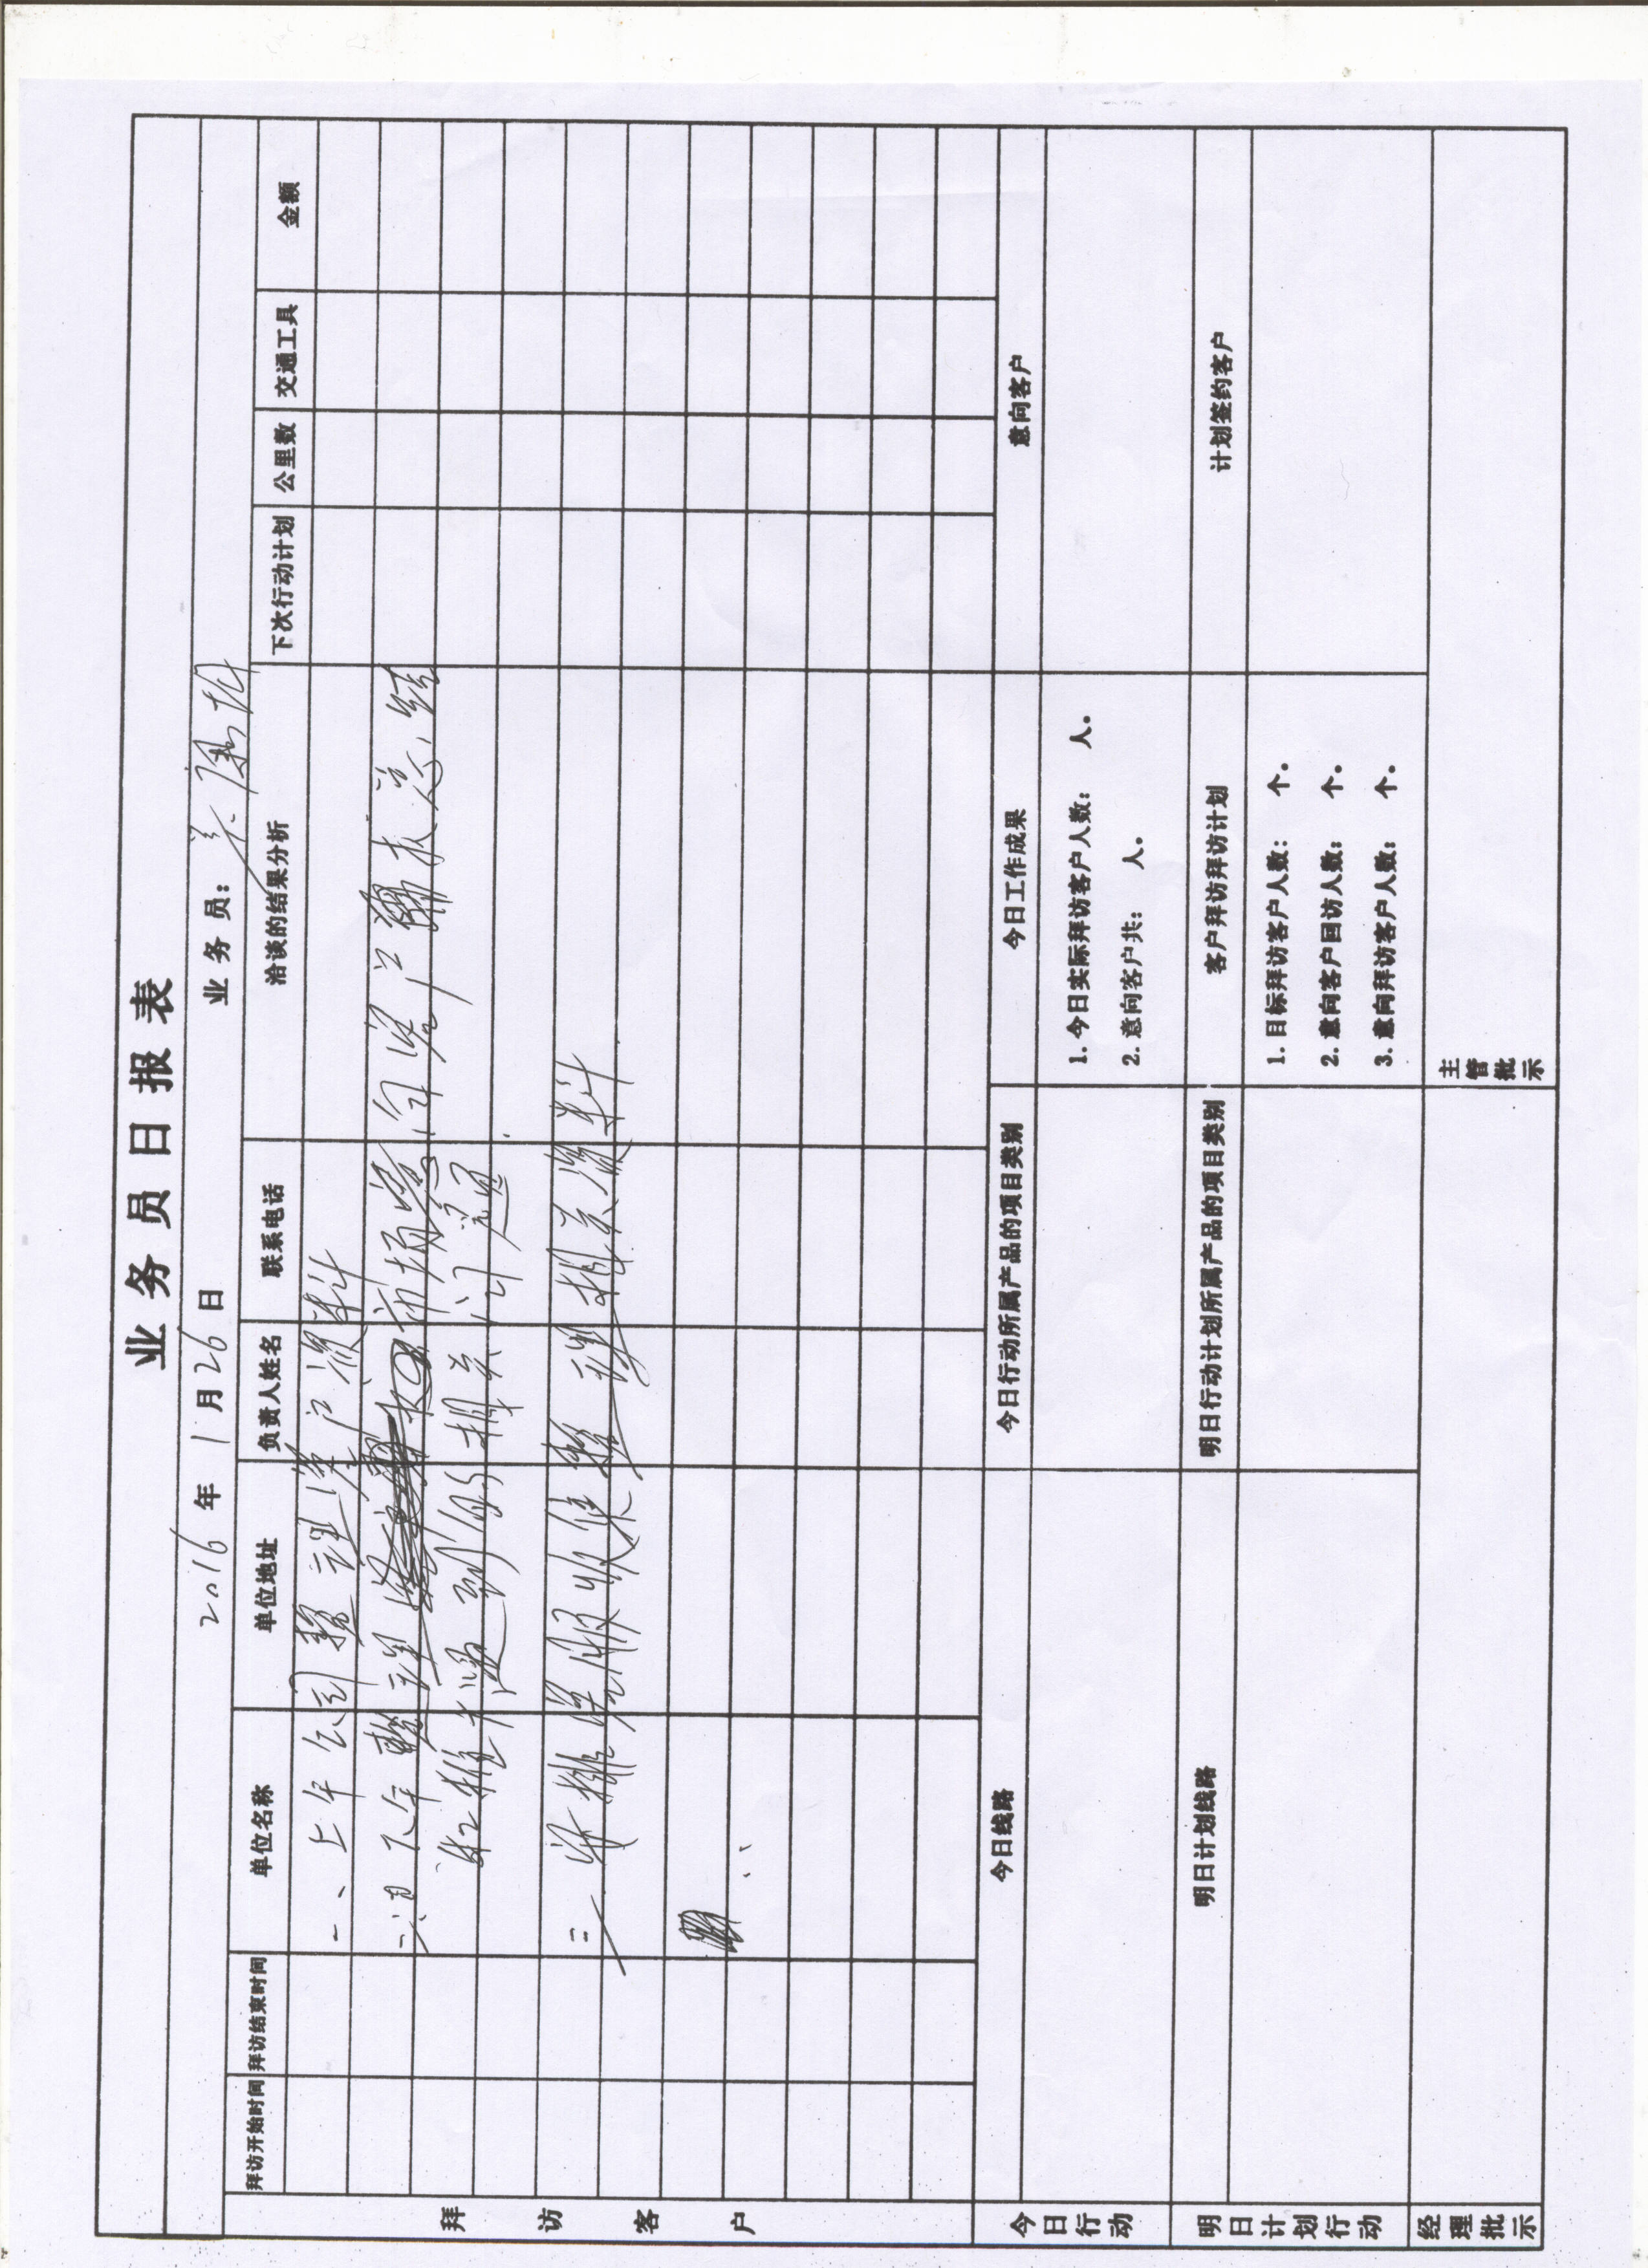 业务员日报表
2016年1月26日 业务员:
拜访开始时间 拜访结束时间 单位名称 单位地址 负责人姓名 联系电话 洽谈的结果分析 下次行动计划 公里数 交通工具 金额
拜访客户
一、上午公司整理客户资料
二、下午 市场 客户
相关 沟通
三、 整理相关资料
今日行动
今日线路 今日行动所属产品的项目类别 今日工作成果 意向客户
1.今日实际拜访客户人数: 人。
2.意向客户共: 人。
明日计划行动
明日计划线路 明日行动计划所属产品的项目类别 客户拜访拜访计划 计划签约客户
1.目标拜访客户人数: 个。
2.意向客户回访人数: 个。
3.意向拜访客户人数: 个。
经理批示 主管批示